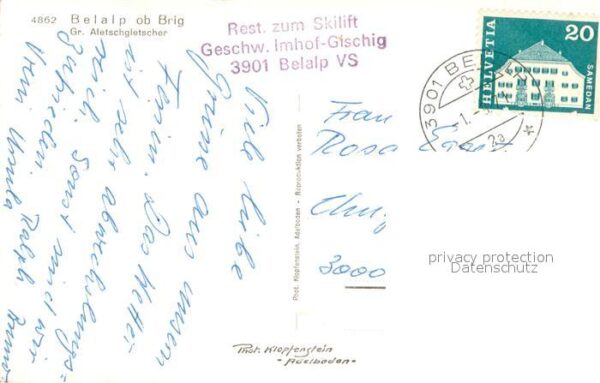 4862 Belalp ob Brig
Gr. Aletschgletscher
Rest. zum Skilift
Geschw. Imhof-Gischig
3901 Belalp VS
HELVETIA
20
SAMEDAN
3901 BE
Viele liebe
Grüsse aus unsern
Ferien. Das Wetter
ist sehr abwechslungs-
reich. Sonst sind wir
zufrieden.
Vreni Ursula Ralph
Frau
Rosa
3000
Phot. Klopfenstein, Adelboden - Reproduktion verboten
privacy protection
Datenschutz
Phot. Klopfenstein
- Adelboden -